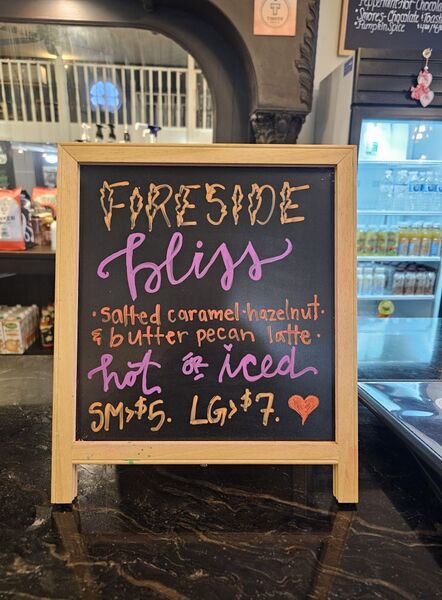 Peppermint Hot Chocola
Smores - Chocolate & Toaste
Pumpkin Spice
FIRESIDE
bliss
• salted caramel • hazelnut •
& butter pecan latte •
hot or iced
SM>$5. LG>$7.